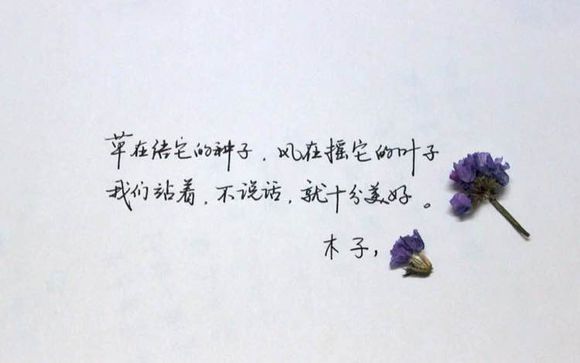 草在结它的种子,风在摇它的叶子
我们站着,不说话,就十分美好。
木子,